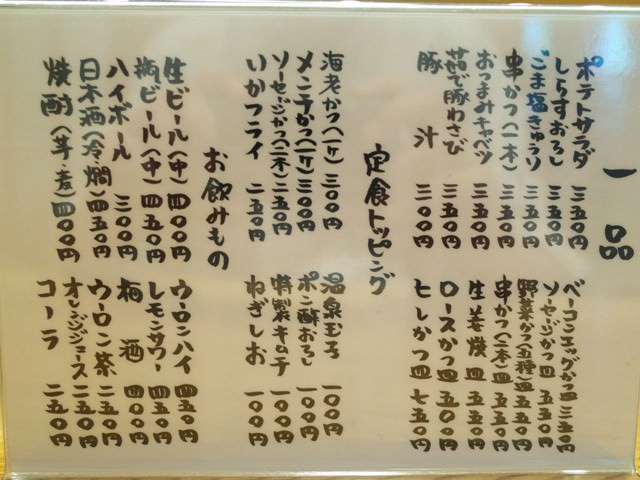 一品
ポテトサラダ 三五〇円
しらすおろし 三五〇円
ごま塩きゅうり 三五〇円
串かつ(一本) 三五〇円
おつまみキャベツ 三五〇円
茹で豚わさび 三五〇円
豚汁 三〇〇円
ベーコンエッグかつ皿 三五〇円
ソーセージかつ皿 五五〇円
野菜かつ(五種)皿 五五〇円
串かつ(二本)皿 五五〇円
生姜焼皿 五五〇円
ロースかつ皿 五〇〇円
ヒレかつ皿 七五〇円
定食トッピング
海老かつ(一ヶ) 三〇〇円
メンチかつ(一ヶ) 三〇〇円
ソーセージかつ(一本) 二五〇円
いかフライ 二五〇円
温泉玉子 一〇〇円
ポン酢おろし 一〇〇円
特製キムチ 一〇〇円
ねぎしお 一〇〇円
お飲みもの
生ビール(中) 四〇〇円
瓶ビール(中) 四五〇円
ハイボール 三〇〇円
日本酒(冷・燗) 四五〇円
焼酎(芋・麦) 四〇〇円
ウーロンハイ 四五〇円
レモンサワー 四五〇円
梅酒 四〇〇円
ウーロン茶 二五〇円
オレンジジュース 二五〇円
コーラ 二五〇円